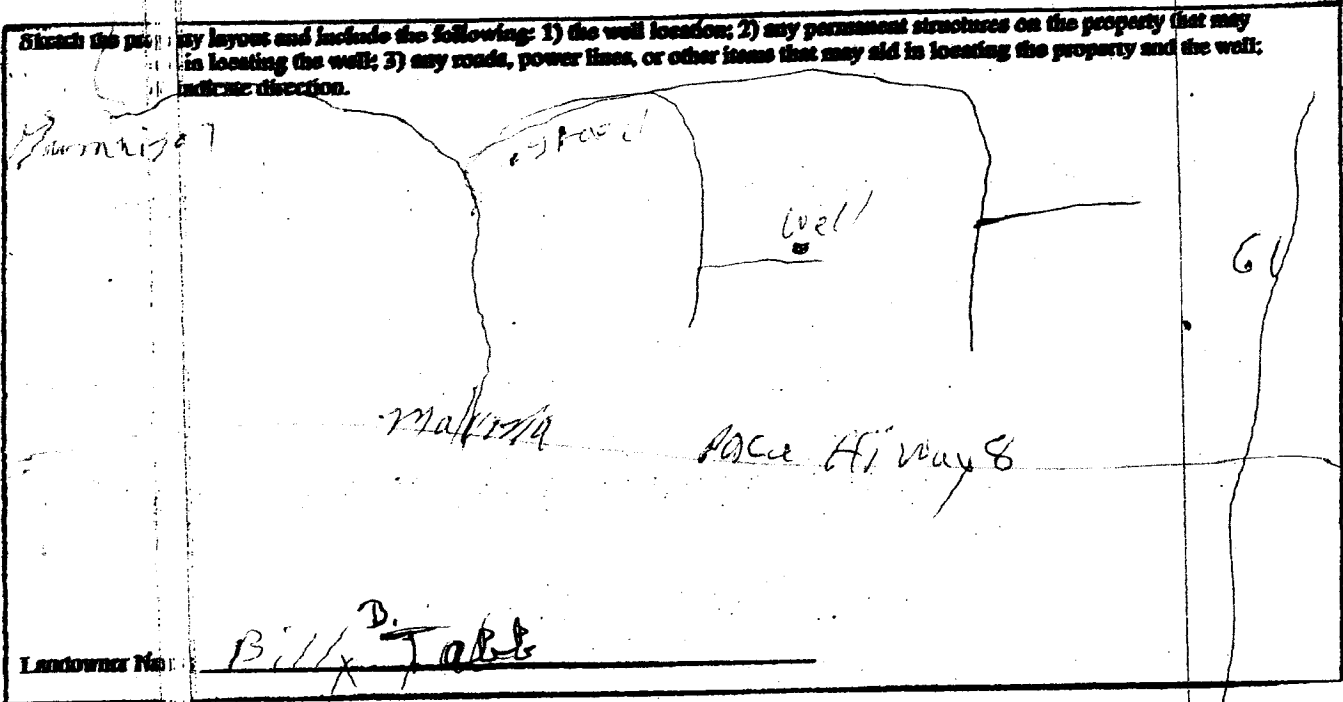 Sketch the property layout and include the following: 1) the well location; 2) any permanent structures on the property that may
in locating the well; 3) any roads, power lines, or other items that may aid in locating the property and the well;
indicate direction.
gravel
Well
61
Malvina
Pace Hiway 8
Landowner Na Billy D. Tabb